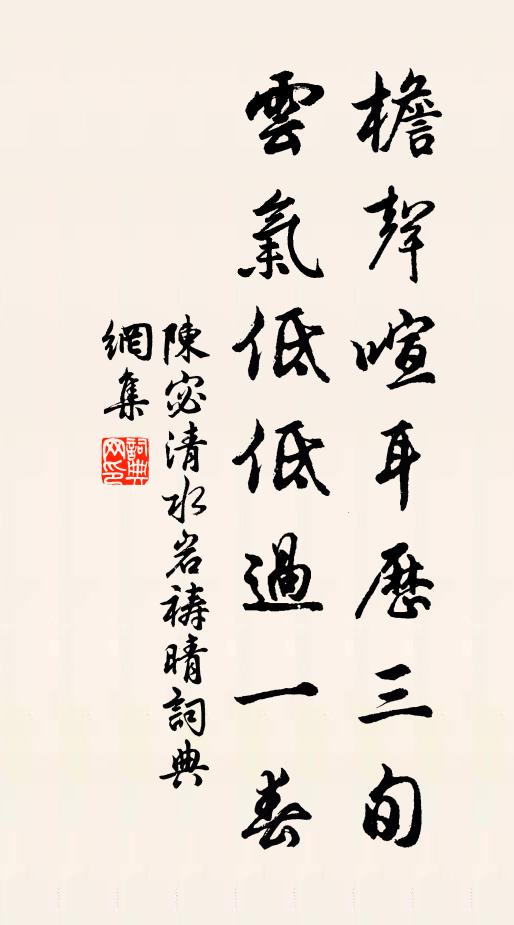 檐聲喧耳歷三旬
雲氣低低過一春
陳宓清水岩禱晴詞典
網集
詞典網印